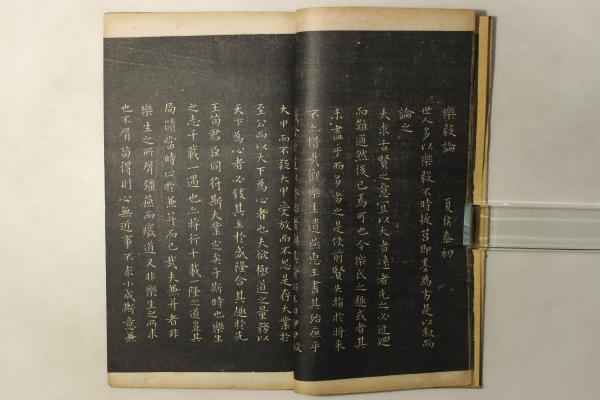 樂毅論
夏侯泰初
世人多以樂毅不時拔莒即墨為劣是以叙而
論之
夫求古賢之意宜以大者遠者先之必迂迴
而難通然後已焉可也今樂氏之趣或者其
未盡乎而多劣之是使前賢失指於將來
不亦惜哉觀樂生遺燕惠王書其殆庶乎
大甲而不疑大甲受放而不怨是存大業於
至公而以天下為心者也夫欲極道之量務以
天下為心者必致其主於盛隆合其趣於先
王苟君臣同符斯大業定矣于斯時也樂生
之志千載一遇也亦將行千載一隆之道豈其
局蹟當時止於兼并而已哉夫兼并者非
樂生之所屑彊燕而廢道又非樂生之所求
也不屑苟得則心無近事不求小成斯意兼